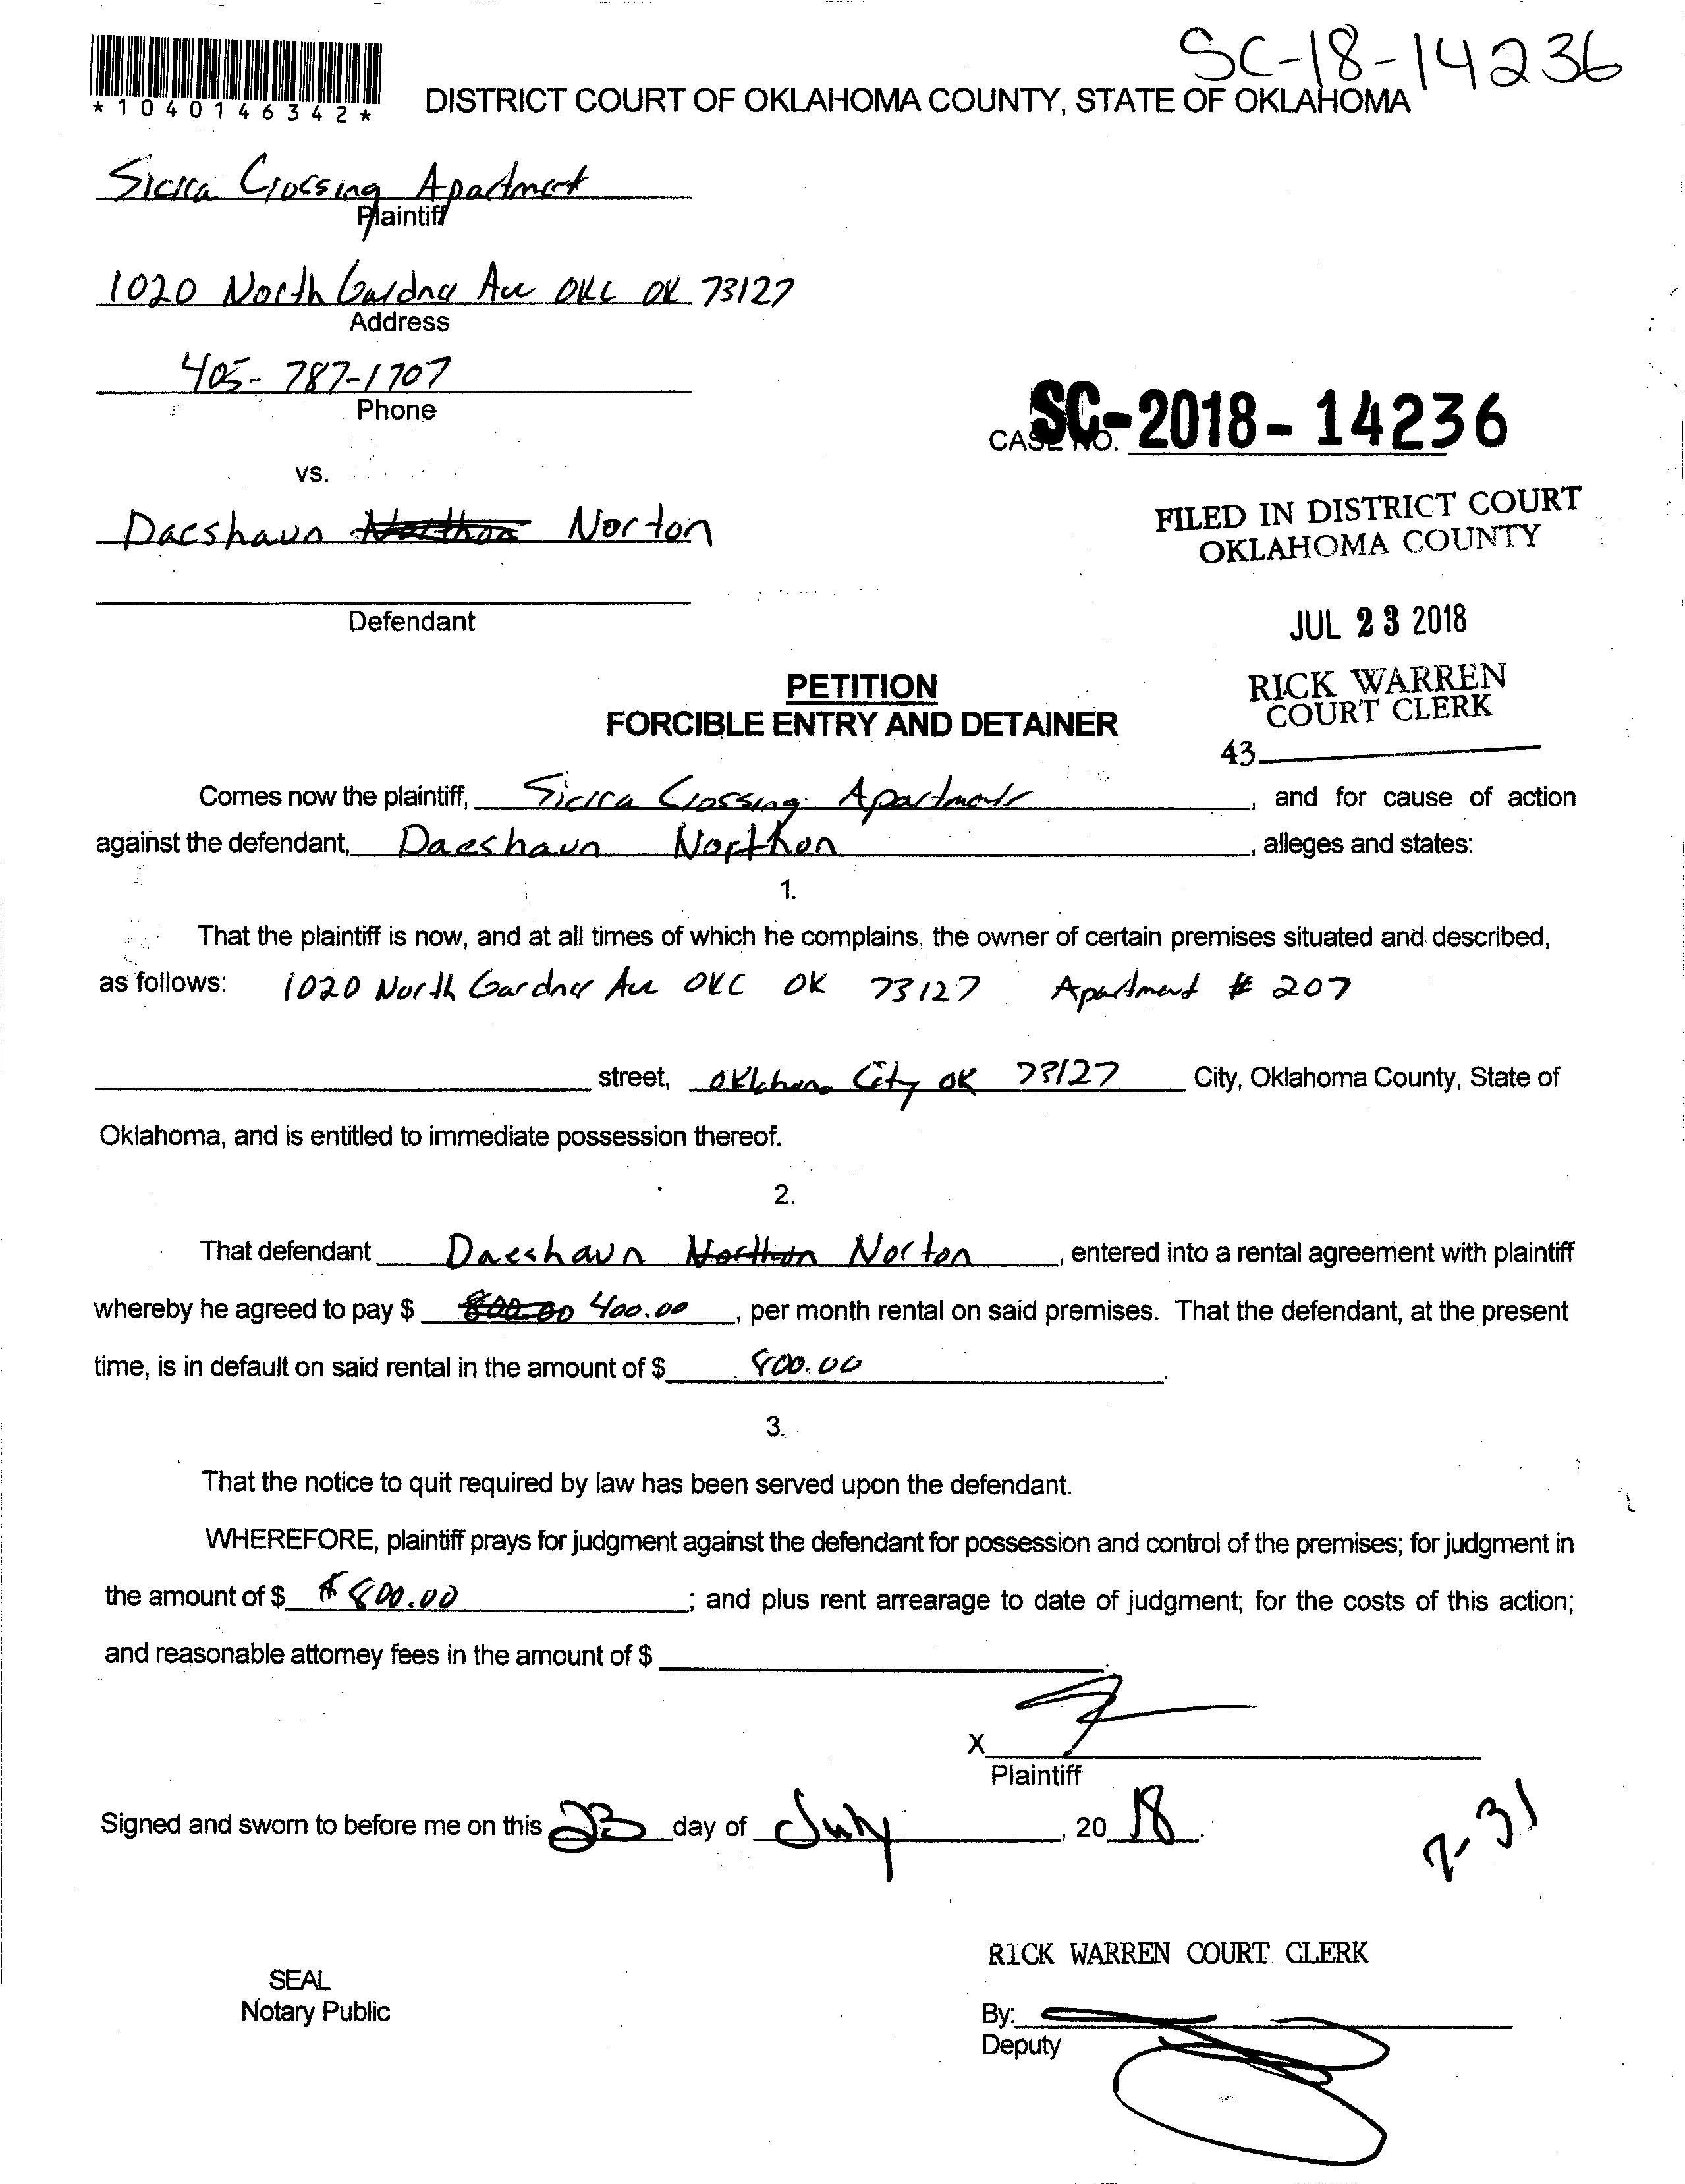 SC-18-14236
*1040146342*
DISTRICT COURT OF OKLAHOMA COUNTY, STATE OF OKLAHOMA
Sierra Crossing Apartment
Plaintiff
1020 North Gardner Ave OKC OK 73127
Address
405-787-1707
Phone
CASE NO. SC-2018-14236
vs.
FILED IN DISTRICT COURT
OKLAHOMA COUNTY
Daeshaun Northon Norton
Defendant
JUL 23 2018
PETITION
FORCIBLE ENTRY AND DETAINER
RICK WARREN
COURT CLERK
43
Comes now the plaintiff, Sierra Crossing Apartments, and for cause of action
against the defendant, Daeshaun Northon, alleges and states:
1.
That the plaintiff is now, and at all times of which he complains, the owner of certain premises situated and described,
as follows: 1020 North Gardner Ave OKC OK 73127 Apartment # 207
street, Oklahoma City OK 73127 City, Oklahoma County, State of
Oklahoma, and is entitled to immediate possession thereof.
2.
That defendant Daeshaun Northon Norton, entered into a rental agreement with plaintiff
whereby he agreed to pay $ 800.00 400.00, per month rental on said premises. That the defendant, at the present
time, is in default on said rental in the amount of $ 800.00.
3.
That the notice to quit required by law has been served upon the defendant.
WHEREFORE, plaintiff prays for judgment against the defendant for possession and control of the premises; for judgment in
the amount of $ $800.00; and plus rent arrearage to date of judgment; for the costs of this action;
and reasonable attorney fees in the amount of $
X
Plaintiff
Signed and sworn to before me on this 23 day of July, 2018.
7-31
RICK WARREN COURT CLERK
SEAL
Notary Public
By:
Deputy